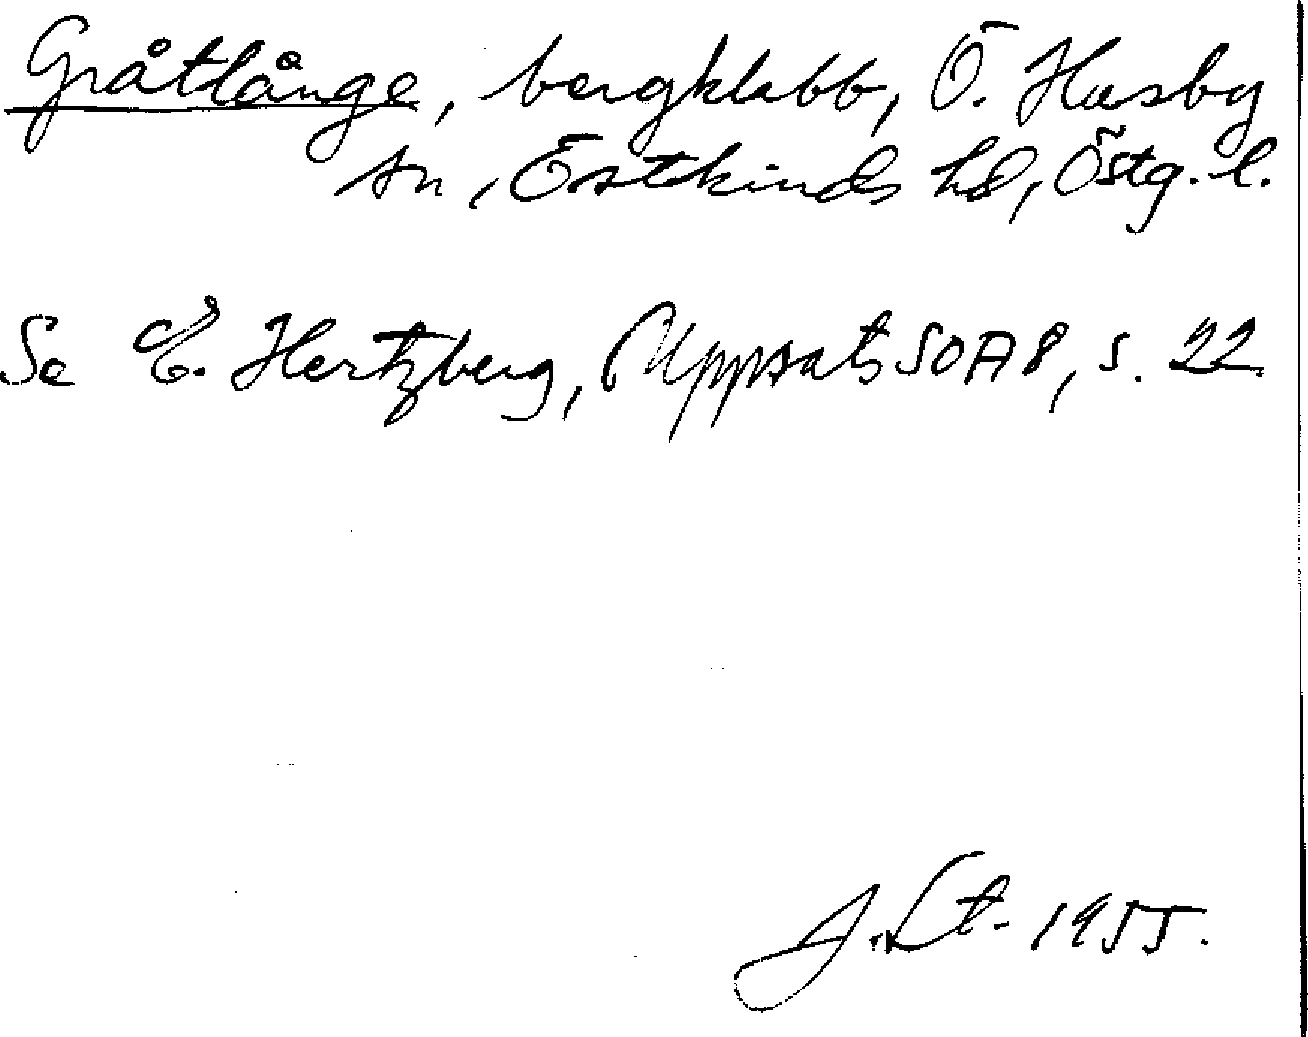 Gråtlånge, bergklabb, Ö. Husby
sn, Östkinds hd, Östg. l.
Se E. Hertzberg, Uppsats SOA 8, s. 22
J. St. 1955.